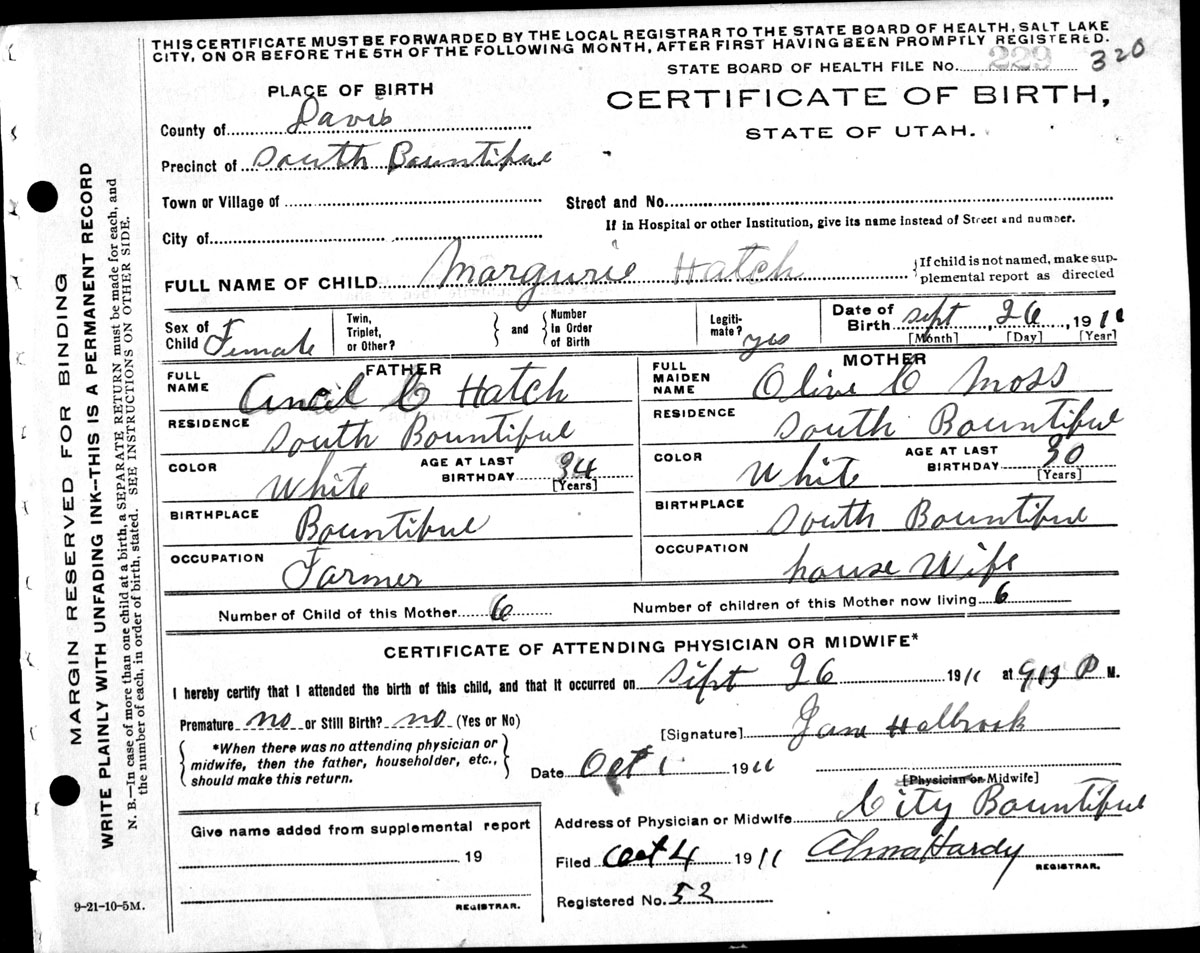 THIS CERTIFICATE MUST BE FORWARDED BY THE LOCAL REGISTRAR TO THE STATE BOARD OF HEALTH, SALT LAKE
CITY, ON OR BEFORE THE 5TH OF THE FOLLOWING MONTH, AFTER FIRST HAVING BEEN PROMPTLY REGISTERED.
STATE BOARD OF HEALTH FILE No. 229 320
PLACE OF BIRTH
CERTIFICATE OF BIRTH,
STATE OF UTAH.
County of Davis
Precinct of South Bountiful
Town or Village of
Street and No.
If in Hospital or other Institution, give its name instead of Street and number.
City of
FULL NAME OF CHILD Margurie Hatch
If child is not named, make sup-
plemental report as directed
Sex of Child Female
Twin, Triplet, or Other?
and
Number In Order of Birth
Legiti-mate? yes
Date of Birth Sept, 26, 1911
[Month] [Day] [Year]
FATHER
FULL NAME Ancil C Hatch
RESIDENCE South Bountiful
COLOR White
AGE AT LAST BIRTHDAY 34 [Years]
BIRTHPLACE Bountiful
OCCUPATION Farmer
MOTHER
FULL MAIDEN NAME Olive C Moss
RESIDENCE South Bountiful
COLOR White
AGE AT LAST BIRTHDAY 30 [Years]
BIRTHPLACE South Bountiful
OCCUPATION house Wife
Number of Child of this Mother 6
Number of children of this Mother now living 6
CERTIFICATE OF ATTENDING PHYSICIAN OR MIDWIFE*
I hereby certify that I attended the birth of this child, and that it occurred on Sept 26 1911 at P M.
Premature no or Still Birth? no (Yes or No)
*When there was no attending physician or
midwife, then the father, householder, etc.,
should make this return.
[Signature] Jane Holbrook
Date Oct 1 1911
[Physician or Midwife]
Address of Physician or Midwife City Bountiful
Filed Oct 4 1911 Alma Hardy
REGISTRAR.
Registered No. 52
Give name added from supplemental report
19
REGISTRAR.
9-21-10-5M.
MARGIN RESERVED FOR BINDING
WRITE PLAINLY WITH UNFADING INK--THIS IS A PERMANENT RECORD
N. B.—In case of more than one child at a birth, a SEPARATE RETURN must be made for each, and
the number of each, in order of birth, stated. SEE INSTRUCTIONS ON OTHER SIDE.